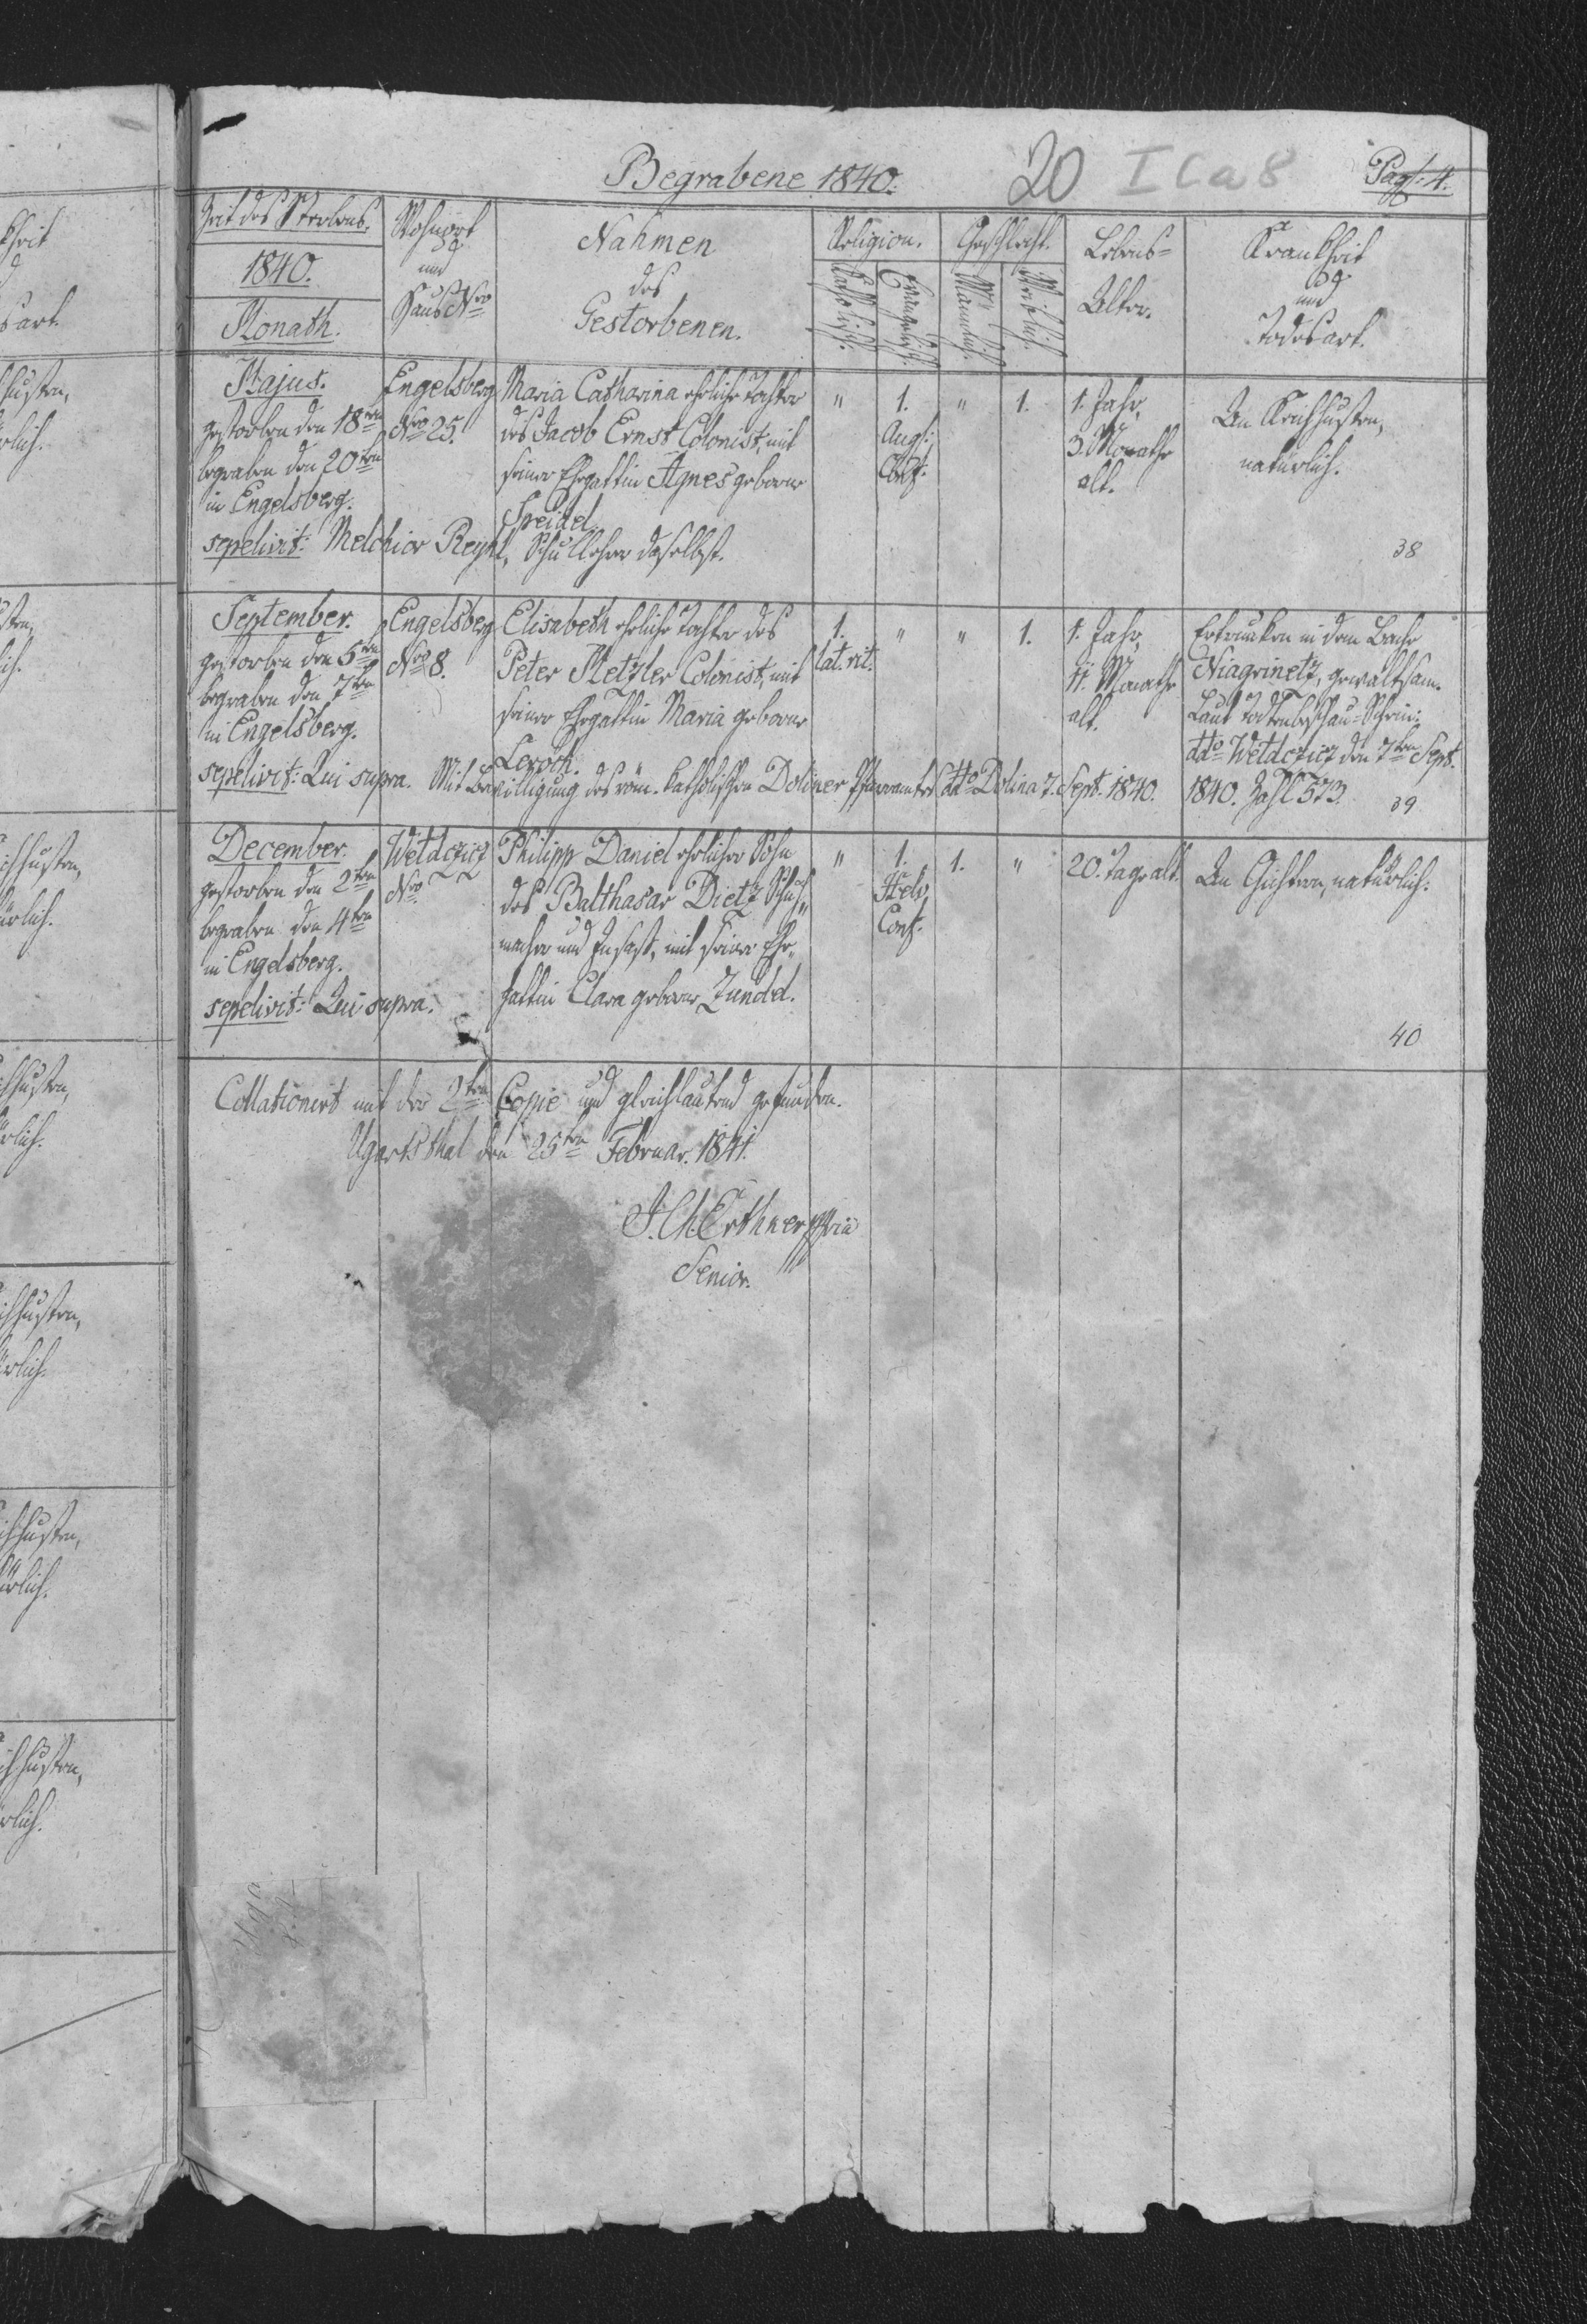 Begrabene 1840.
20 I C a 8
Pag: 4.
Zeit des Sterbens.
1840.
Monath.
Wohnort
und
Haus Nro
Nahmen
des
Gestorbenen.
Religion.
Katholisch.
Evangelisch.
Geschlecht.
Männlich.
Weiblich.
Lebens-
Alter.
Krankheit
und
Todesart.
Majus.
gestorben den 18ten
begraben den 20ten
in Engelsberg.
Engelsberg
Nro 25.
Maria Catharina eheliche Tochter
des Jacob Ernst Colonist, mit
seiner Ehegattin Agnes geborne
Speidel.
" 1. " 1.
Augs:
Conf:
1. Jahr,
3. Monathe
alt.
An Keichhusten,
natürlich.
sepelivit: Melchior Reyhl, Schullehrer daselbst.
38
September.
gestorben den 5ten
begraben den 7ten
in Engelsberg.
Engelsberg
Nro 8.
Elisabeth eheliche Tochter des
Peter Metzler Colonist, mit
seiner Ehegattin Maria geborne
Leroth.
1. " " 1.
lat. rit.
1. Jahr,
11. Monathe
alt.
Ertrunken in dem Bache
Niagrinetz, gewaltsam.
Laut Todtenbeschau-Schein:
ddo Weldzicz den 7ten Sept.
1840. Zahl 573.
sepelivit: Qui supra. Mit Bewilligung des röm. katholischen Doliner Pfarramtes ddo Dolina 7. Sept. 1840.
39
December.
gestorben den 2ten
begraben den 4ten
in Engelsberg.
sepelivit: Qui supra.
Weldzicz
Nro
Philipp Daniel ehelicher Sohn
des Balthasar Dietz Schuh"
macher und Insaß, mit seiner Ehe"
gattin Clara geborne Zundel.
" 1. 1. "
Helv.
Conf.
20. Tage alt.
An Gichtern, natürlich.
40
Collationirt mit der 2ten Copie und gleichlautend gefunden.
Ugartsthal den 25ten Februar. 1841.
Senior.